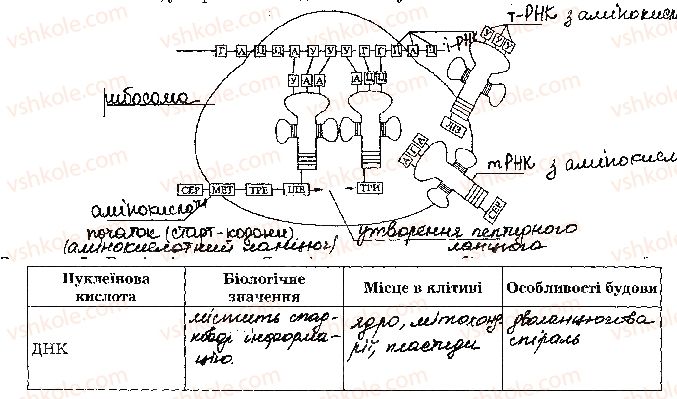 т-РНК з амінокисл
У У У
Г А Ц Ц А У У У Г Г Ц А Ц
і-РНК
У А А
А Ц Ц
рибосома
ЛІЗ
А Г А
тРНК з амінокисл
СЕР МЕТ ТРЕ ІЛЕ
ТРИ
СЕР
амінокислоти
початок (старт-кодони)
(амінокислотний ланцюг)
утворення пептидного
ланцюга
Нуклеїнова кислота
Біологічне значення
Місце в клітині
Особливості будови
ДНК
містить спад-
кову інформа-
цію.
ядро, мітохонд-
рії, пластиди
дволанцюгова
спіраль
vshkole.com